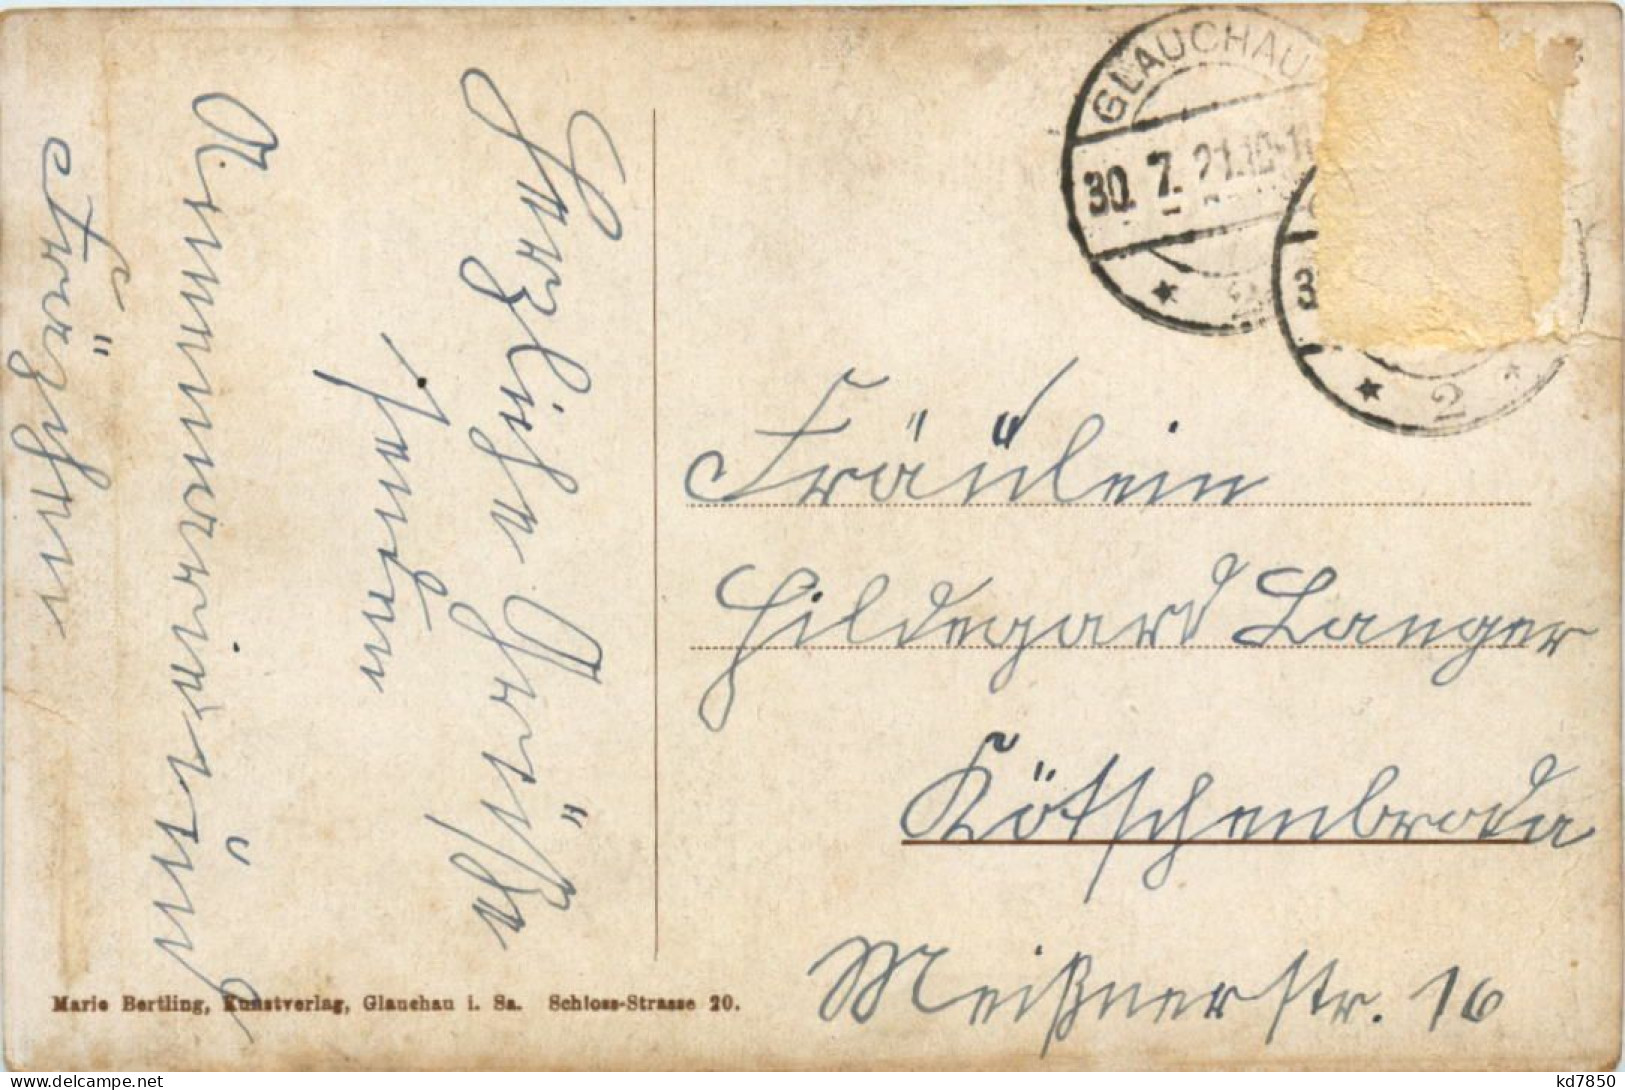 Herzliche Grüße
senden
Annemarie und
GLAUCHAU
30. 7. 21. 10-1
* 2
* 2 *
Fräulein
Hildegard Langer
Kötschenbroda
Meißnerstr. 16
Marie Bertling, Kunstverlag, Glauchau i. Sa. Schloss-Strasse 20.
kd7850